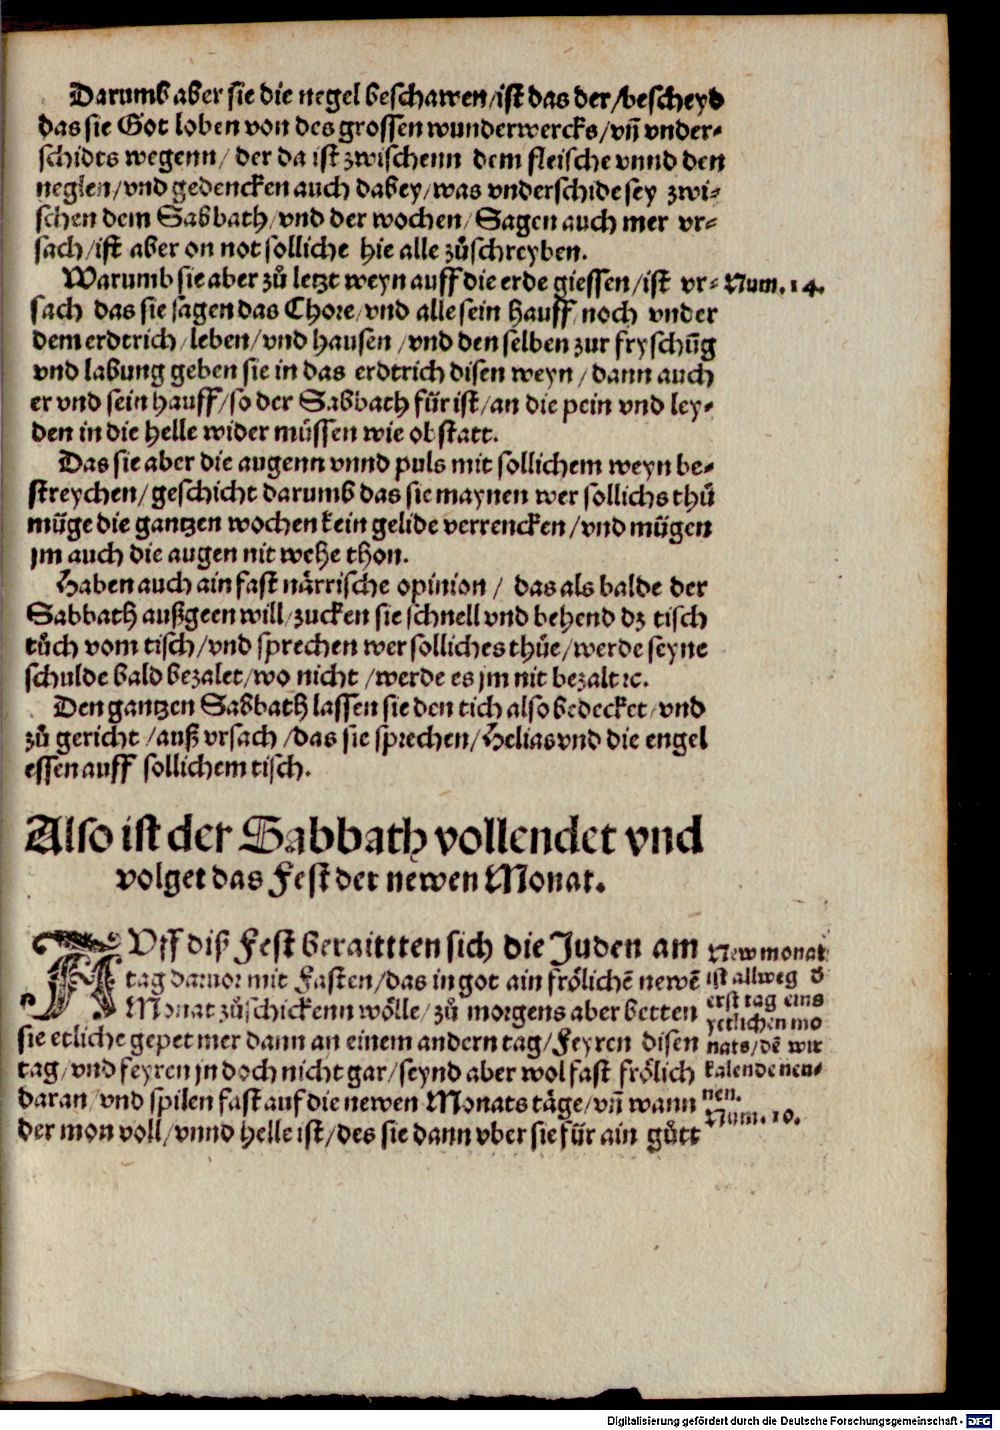 Darumb aber sie die negel beschawen/ist das der/bescheyd
das sie Got loben von des grossen wunderwercks/vñ vnder-
schidts wegenn/ der da ist zwischenn dem fleische vnnd den
neglen/vnd gedencken auch dabey/was vnderschide sey zwi-
schen dem Sabbath/vnd der wochen/Sagen auch mer vr-
sach/ist aber on not solliche hie alle zůschreyben.
Warumb sie aber zů letzt weyn auff die erde giessen/ist vr-
Num.14.
sach das sie sagen das Chore/vnd alle sein hauff/noch vnder
dem erdtrich/leben/vnd hausen/vnd den selben zur fryschũg
vnd labung geben sie in das erdtrich disen weyn/dann auch
er vnd sein hauff/so der Sabbath für ist/an die pein vnd ley-
den in die helle wider müssen wie ob statt.
Das sie aber die augenn vnnd puls mit sollichem weyn be-
streychen/geschicht darumb das sie maynen wer sollichs thů
müge die gantzen wochen kein gelide verrencken/vnd mügen
jm auch die augen nit wehe thon.
Haben auch ain fast närrische opinion/ das als balde der
Sabbath außgeen will/zucken sie schnell vnd behend dz tisch
tůch vom tisch/vnd sprechen wer solliches thüe/werde seyne
schulde bald bezalet/wo nicht/werde es jm nit bezalt ꝛc.
Den gantzen Sabbath lassen sie den tich also bedecket/vnd
zů gericht/auß vrsach/das sie sprechen/Helias vnd die engel
essen auff sollichem tisch.
Also ist der Sabbath vollendet vnd
volget das Fest der newen Monat.
AVff diß Fest beraittten sich die Juden am
tag daruor mit Fasten/das in got ain frölichē newē
Monat zůschickenn wölle/zů morgens aber betten
sie etliche gepet mer dann an einem andern tag/Feyren disen
tag/vnd feyren jn doch nicht gar/seynd aber wol fast frölich
daran/vnd spilen fast auf die newen Monats täge/vñ wann
der mon voll/vnnd helle ist/des sie dann vber sie für ain gůtt
New monat
ist allweg d̄
erst tag eins
yetlichen mo
nats/dē wir
kalende nen-
nen.
Num.10.
Digitalisierung gefördert durch die Deutsche Forschungsgemeinschaft - DFG